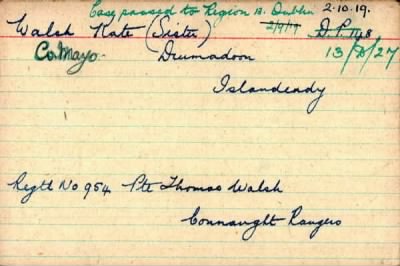 Case passed to Region 13. Dublin 2.10.19.
2/9/19
Walsh Kate (Sister) D.P. 1148
Co. Mayo Drumadoon 13/D/27
Islandeady
Regtl No 954 Pte Thomas Walsh
Connaught Rangers